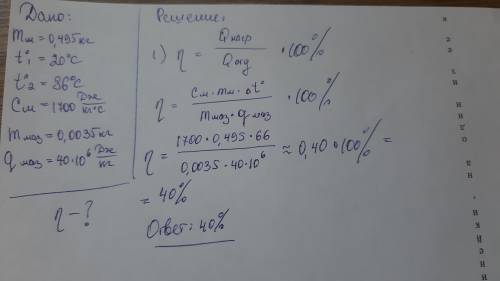 Дано:
mм = 0,495 кг
t°1 = 20°C
t°2 = 86°C
Cм = 1700 Дж/кг·°C
mмаз = 0,0035 кг
qмаз = 40·10⁶ Дж/кг
η - ?
Решение:
1) η = Qнагр/Qотд · 100%
η = Cм·mм·Δt°/mмаз·qмаз · 100%
η = 1700·0,495·66/0,0035·40·10⁶ ≈ 0,40·100% =
= 40%
Ответ: 40%